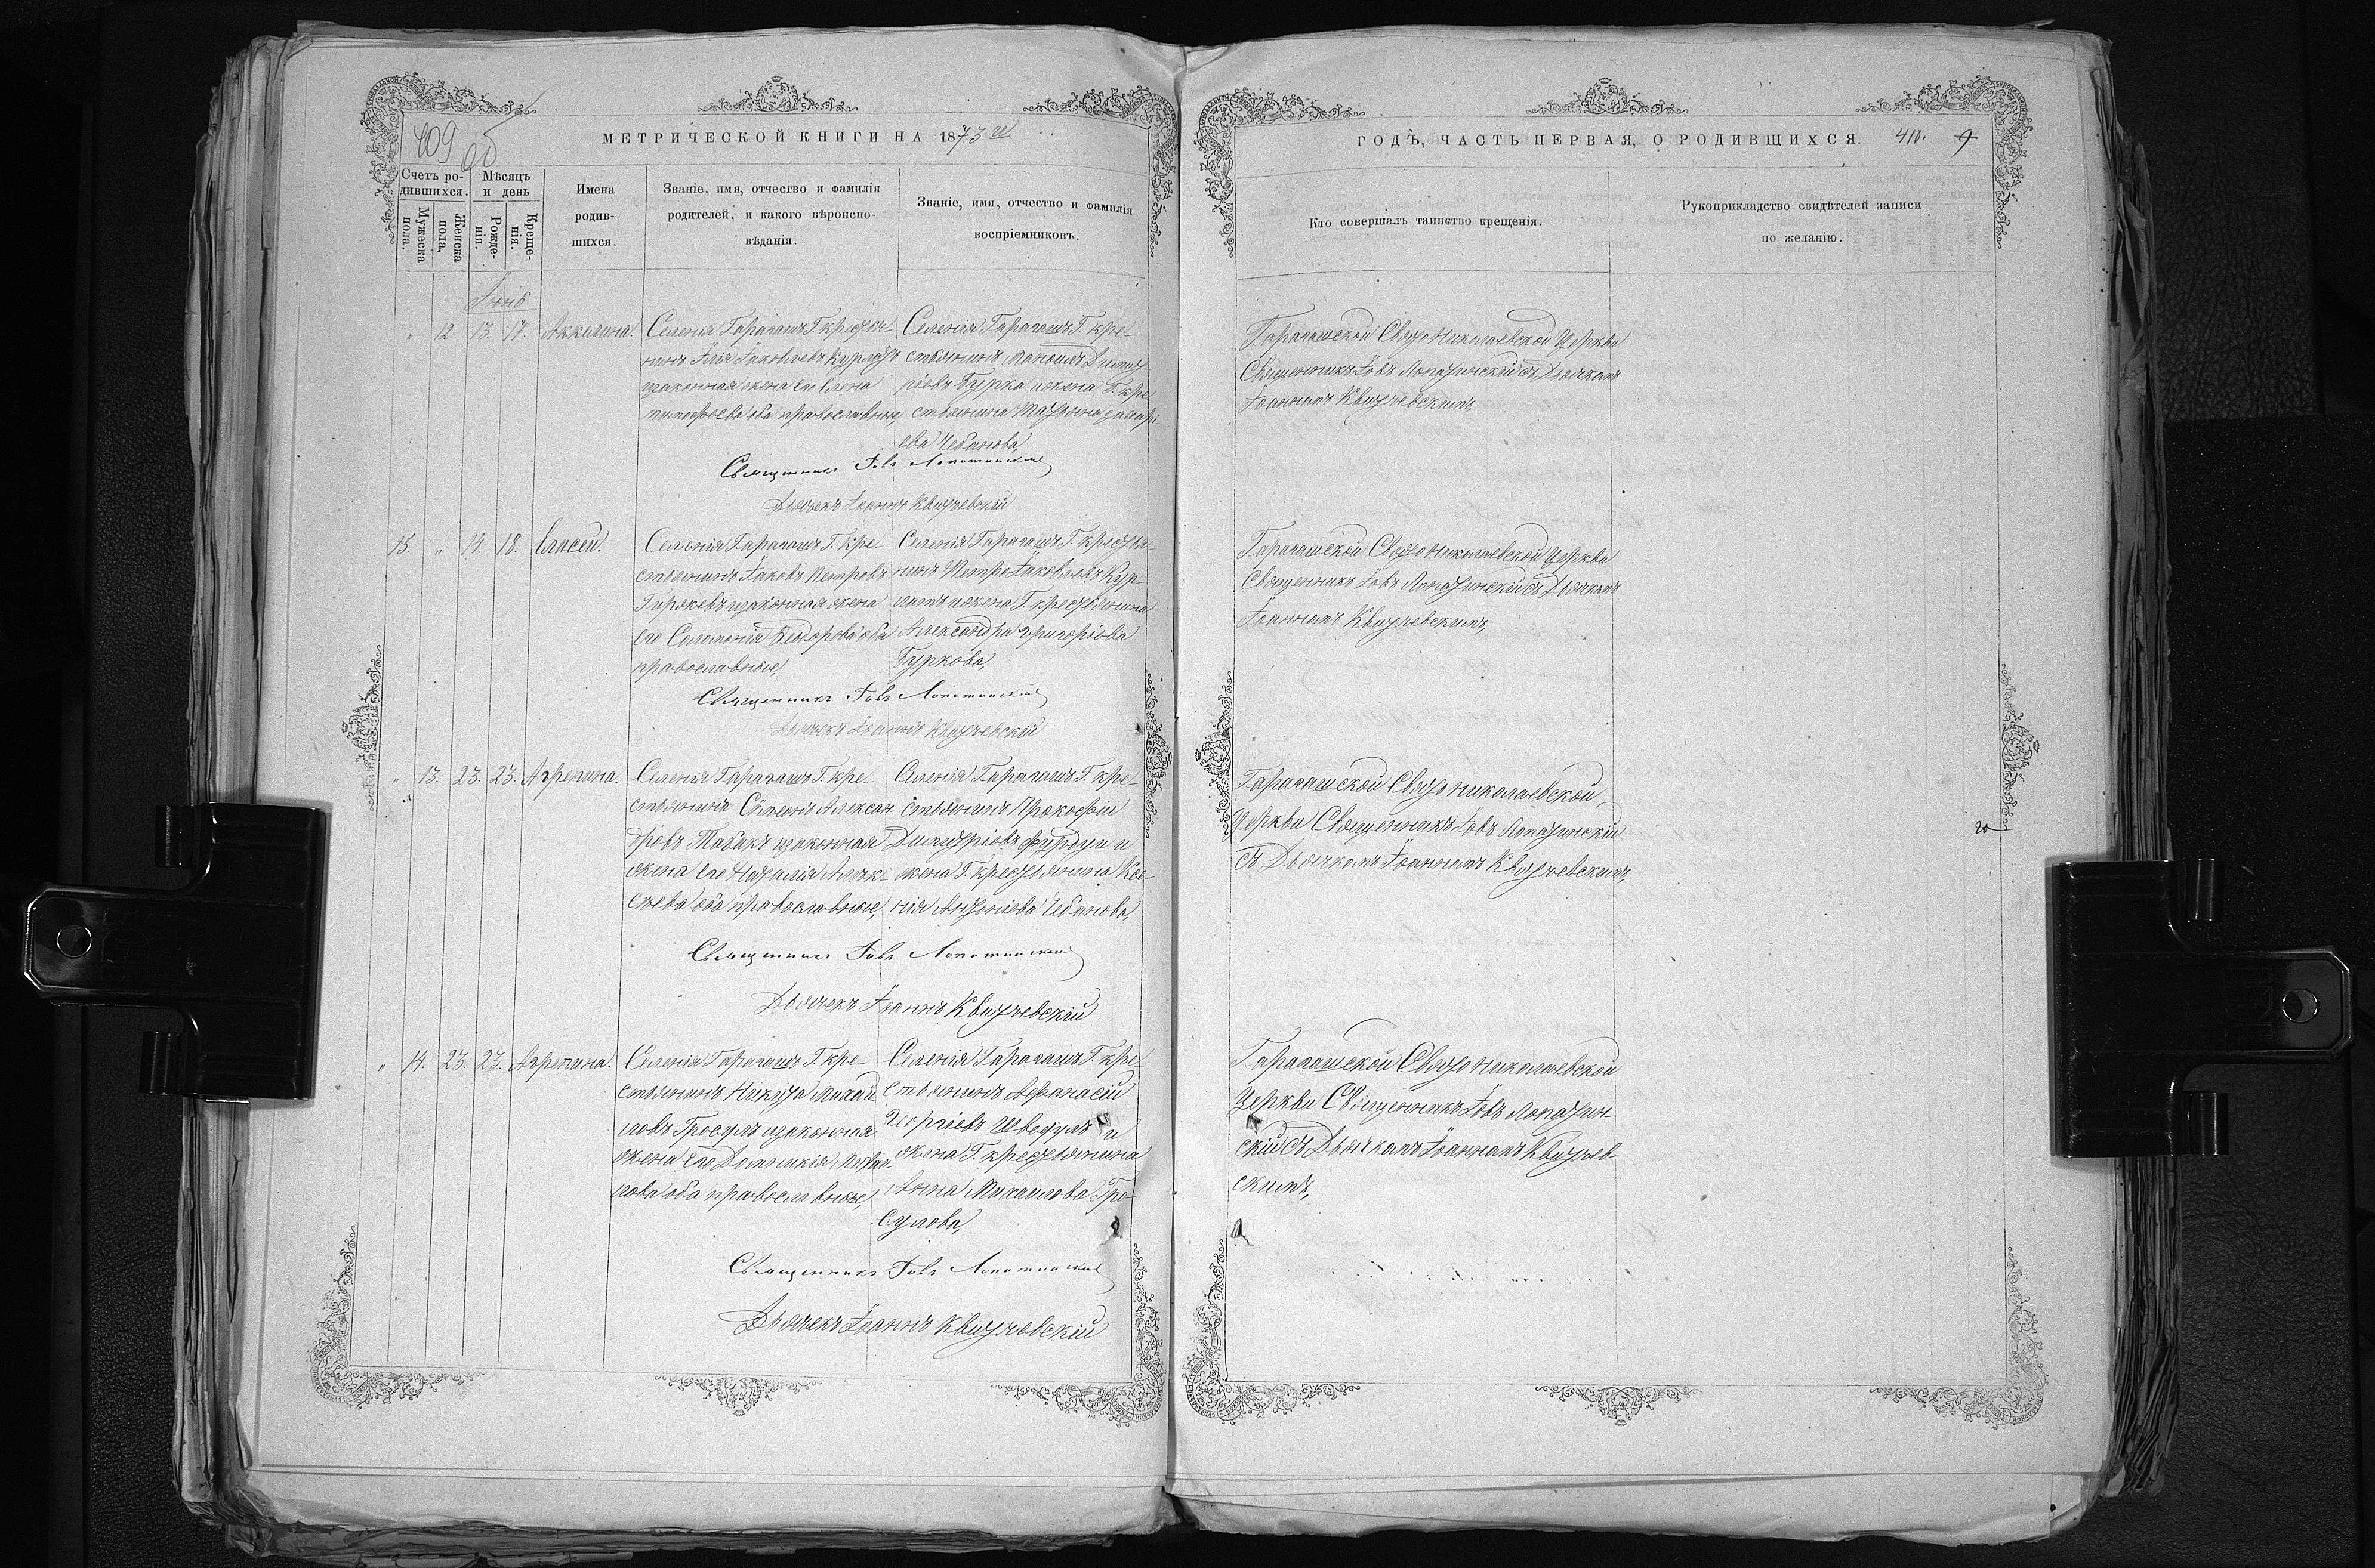 409 об
МЕТРИЧЕСКОЙ КНИГИ НА 1873 й
Счетъ ро-
дившихся.
Мужеска
пола.
Женска
пола,
Мѣсяцъ
и день
Рожде-
нія.
Креще-
нія.
Имена
родив-
шихся.
Званіе, имя, отчество и фамилія
родителей, и какого вѣроиспо-
вѣданія.
Званіе, имя, отчество и фамилія
воспріемниковъ.
Іюнь
" 12. 13. 17. Аккилина.
Селенія Гарагашъ Г. крестья-
нинъ Ілія Іаковлевъ Курлатъ
изаконная жена его Елена
Тимофѣева оба православные,
Селенія Гарагашъ Г. кре-
стьянинъ Маноилъ Димит-
ріевъ Бурка ижена Г. кре-
стьянина Захарі-
ева Чебанова,
Священникъ Іовъ Лопатинскій
Дьячекъ Іоаннъ Квитчевскій
15. " 14. 18. Елисей.
Селенія Гарагашъ Г. кре-
стьянинъ Іаковъ Петровъ
изаконная жена
его Соломонія Ѳеодорова оба
православные,
Селенія Гарагашъ Г. крестья-
нинъ Петръ Іаковлевъ Кур-
латъ ижена Г. крестьянина
Александра Григоріева
Буркова,
Священникъ Іовъ Лопатинскій
Дьячекъ Іоаннъ Квитчевскій
" 13. 23. 23. Агрепина.
Селенія Гарагашъ Г. кре-
стьянинъ Сѵмеонъ Алексан
дровъ Табакъ изаконная
жена его Наталія Алек-
сѣева оба православные,
Селенія Гарагашъ Г. кре-
стьянинъ Прокофій
Димитріевъ Фуртун и
жена Г. крестьянина Ксе-
нія Антоніева Чебанова,
Священникъ Іовъ Лопатинскій
Дьячекъ Іоаннъ Квитчевскій
" 14. 23. 23. Агрепина.
Селенія Гарагашъ Г. кре-
стьянинъ Никита Михаи
ловъ Гросулъ изаконная
жена его Домникія Михаи-
лова оба православные,
Селенія Гарагашъ Г. кре-
стьянинъ Афанасій
Георгіевъ и
жена Г. крестьянина
Анна Михаилова Гро-
сулова,
Священникъ Іовъ Лопатинскій
Дьячекъ Іоаннъ Квитчевскій
ГОДЪ, ЧАСТЬ ПЕРВАЯ, О РОДИВШИХСЯ. 410. 9
Кто совершалъ таинство крещенія.
Рукоприкладство свидѣтелей записи
по желанію.
Гарагашской Свято Николаевской Церкви
Священникъ Іовъ Лопатинскій съ Дьячкомъ
Іоанномъ Квитчевскимъ,
Гарагашской Свято Николаевской Церкви
Священникъ Іовъ Лопатинскій съ Дьячкомъ
Іоанномъ Квитчевскимъ,
Гарагашской Свято Николаевской
Церкви Священникъ Іовъ Лопатинскій
съ Дьячкомъ Іоанномъ Квитчевскимъ,
Гарагашской Свято Николаевской
Церкви Священникъ Іовъ Лопатин-
скій съ Дьячкомъ Іоанномъ Квитчев-
скимъ,